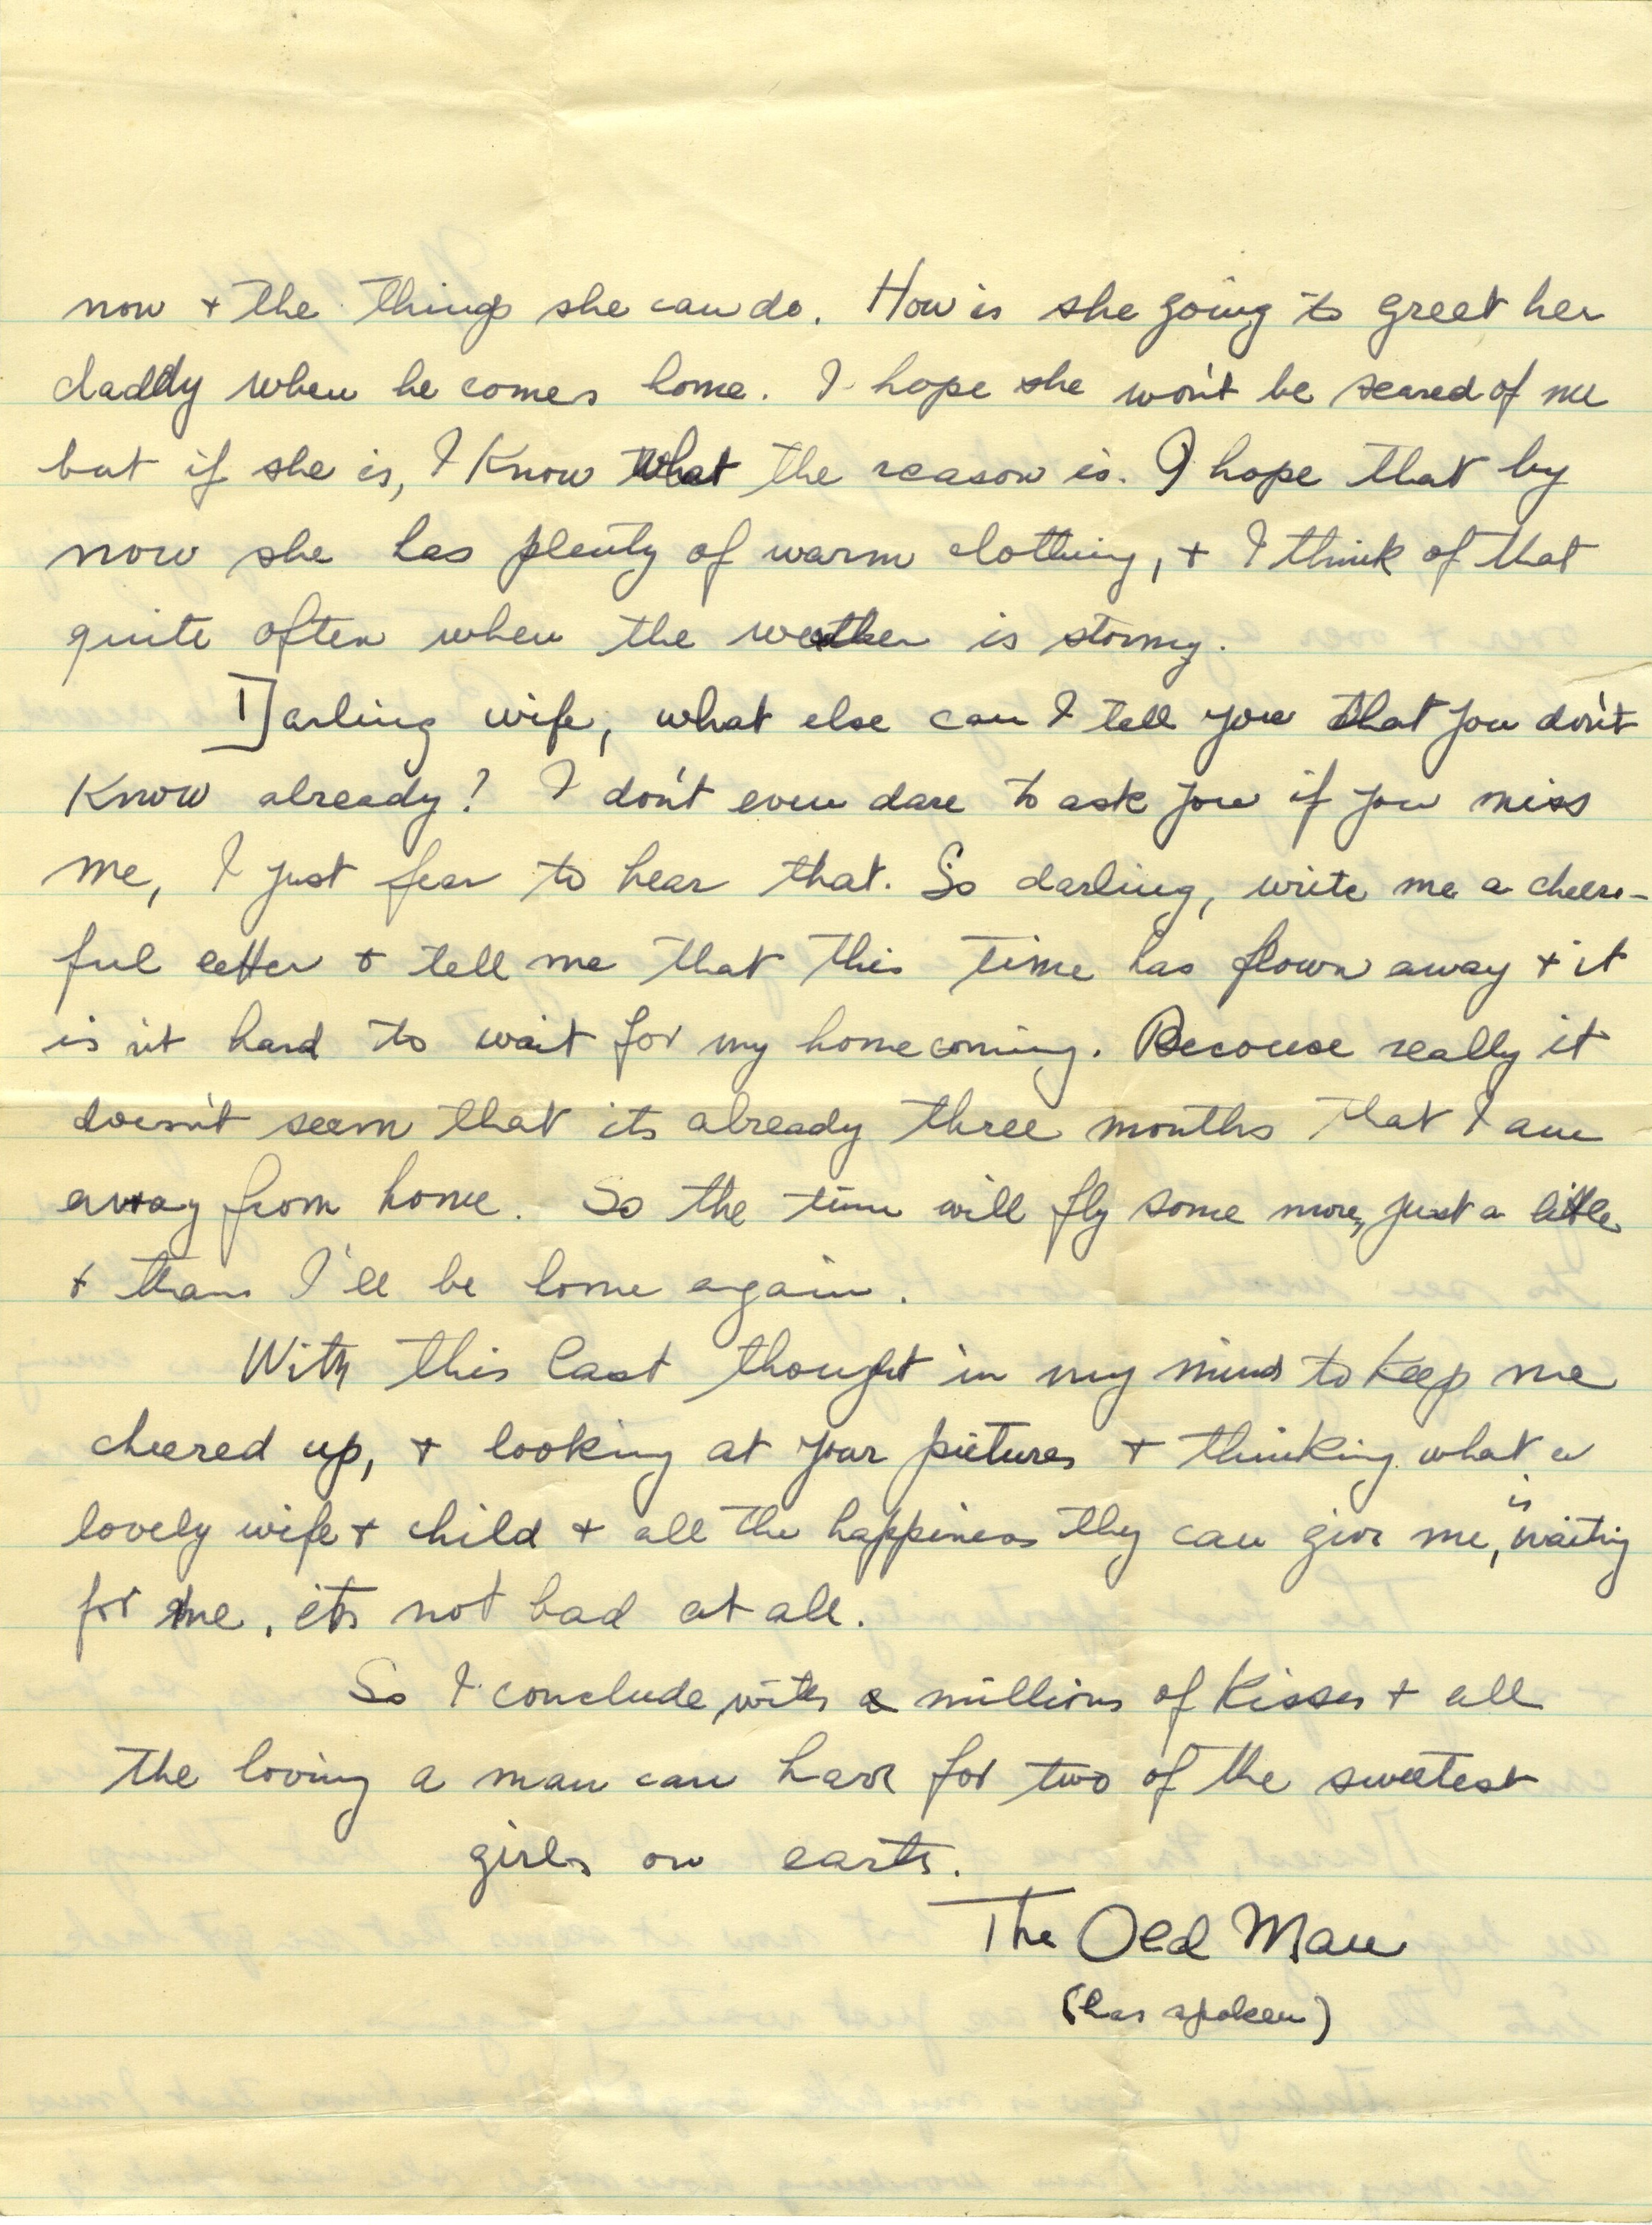 now + the things she can do. How is she going to greet her
daddy when he comes home. I hope she won't be scared of me
but if she is, I know what the reason is. I hope that by
now she has plenty of warm clothing, + I think of that
quite often when the weather is stormy.
Darling wife, what else can I tell you that you don't
know already? I don't even dare to ask you if you miss
me, I just fear to hear that. So darling, write me a cheer-
ful letter + tell me that this time has flown away + it
is n't hard to wait for my homecoming. Because really it
doesn't seem that its already three months that I am
away from home. So the time will fly some more, just a little
+ than I'll be home again.
With this last thought in my mind to keep me
cheered up, + looking at your pictures + thinking what a
lovely wife + child + all the happiness they can give me, is waiting
for me, its not bad at all.
So I conclude with a millions of kisses + all
the loving a man can have for two of the sweetest
girls on earth.
The Old Man
(has spoken)